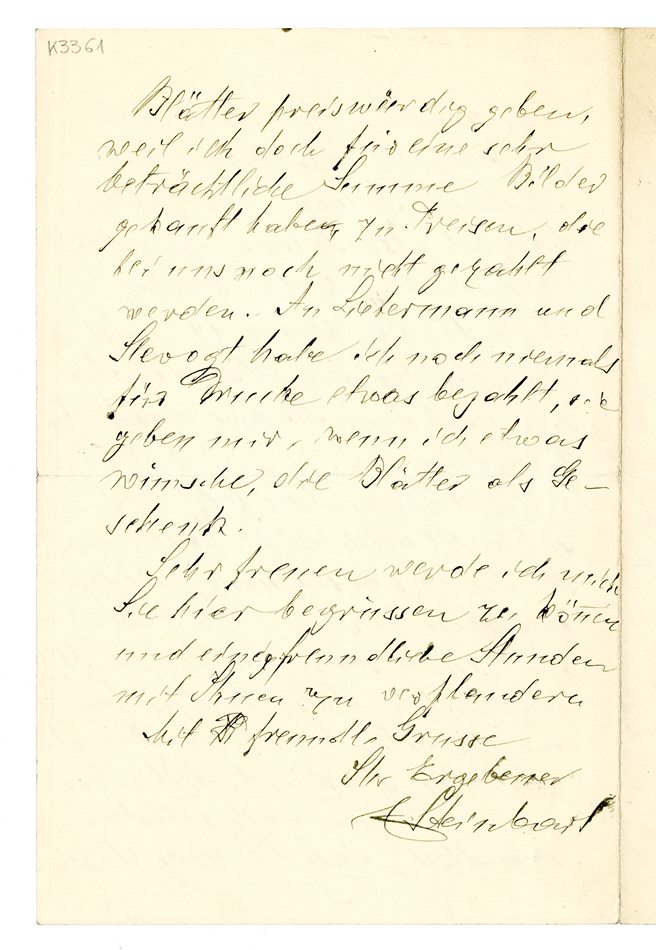 K3361
Blätter preiswürdig geben,
weil ich doch für eine sehr
beträchtliche Summe Bilder
gekauft habe, zu Preisen, die
bei uns noch nicht gezahlt
werden. An Liebermann und
Slevogt habe ich noch niemals
für Drucke etwas bezahlt, sie
geben mir, wenn ich etwas
wünsche, die Blätter als Ge-
schenk.
Sehr freuen werde ich mich
Sie hier begrüssen zu können
und einige freundliche Stunden
mit Ihnen zu verplaudern
Mit freundl. Grusse
Ihr Ergebener
Steinbart